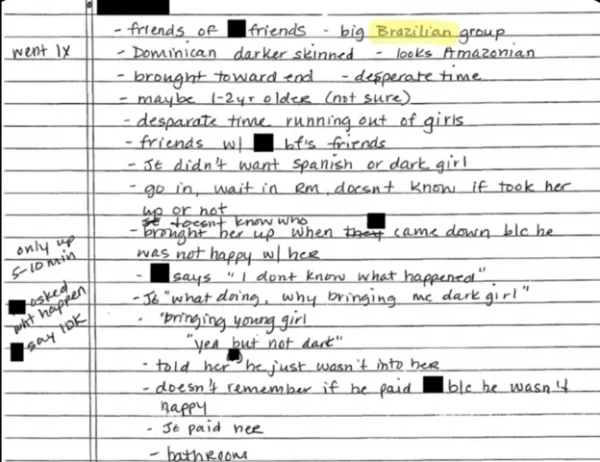 - friends of friends - big Brazilian group
went 1x
- Dominican darker skinned - looks Amazonian
- brought toward end - desperate time
- maybe 1-2yr older (not sure)
- desparate time running out of girls
- friends w/ bf's friends
- Je didn't want Spanish or dark girl
- go in, wait in RM, doesnt know if took her
up or not
doesnt know who
- brought her up when they came down b/c he
was not happy w/ her
only up
5-10 min
- says "I dont know what happened"
asked
wht happen
say IDK
- Je "what doing, why bringing me dark girl"
- "bringing young girl
"yea but not dark"
- told her he just wasn't into her
- doesn't remember if he paid b/c he wasn't
happy
- Je paid her
- bathroom